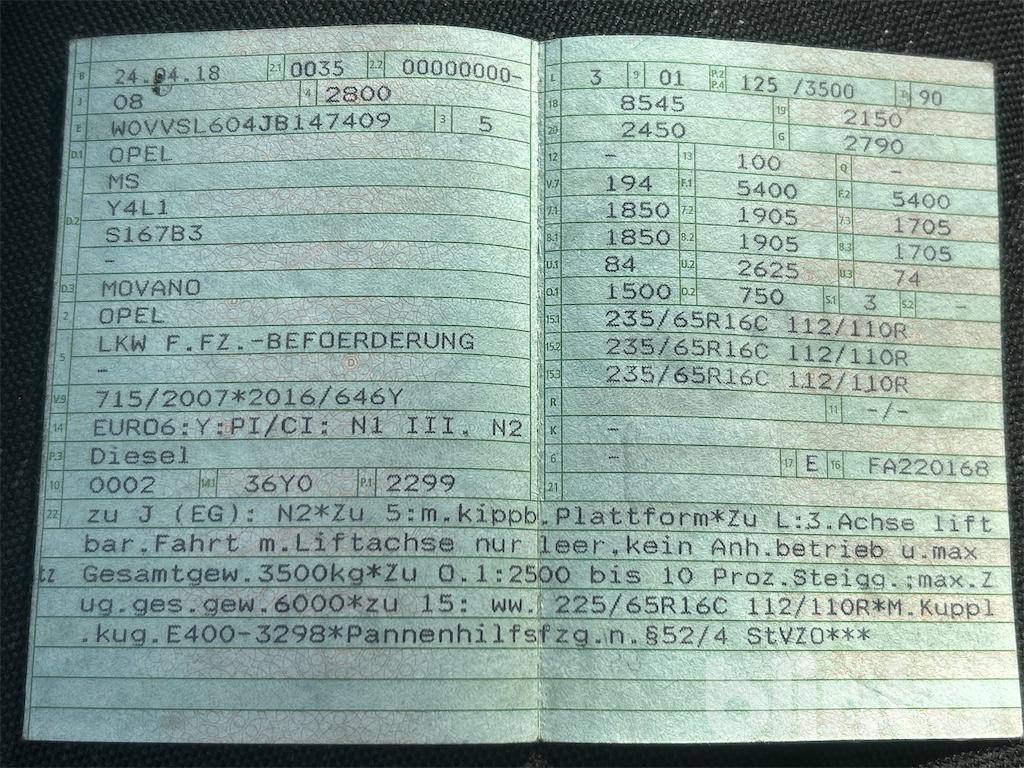 B 24.04.18 2.1 0035 2.2 00000000-
J 08 4 2800
E W0VVSL604JB147409 3 5
D.1 OPEL
MS
D.2 Y4L1
S167B3
-
D.3 MOVANO
2 OPEL
5 LKW F.FZ.-BEFOERDERUNG
-
V.9 715/2007*2016/646Y
14 EURO6:Y:PI/CI: N1 III. N2
P.3 Diesel
10 0002 14.1 36Y0 P.1 2299
L 3 9 01 P.2 P.4 125 /3500 T 90
18 8545 19 2150
20 2450 G 2790
12 - 13 100 Q -
V.7 194 F.1 5400 F.2 5400
7.1 1850 7.2 1905 7.3 1705
8.1 1850 8.2 1905 8.3 1705
U.1 84 U.2 2625 U.3 74
O.1 1500 O.2 750 S.1 3 S.2 -
15.1 235/65R16C 112/110R
15.2 235/65R16C 112/110R
15.3 235/65R16C 112/110R
R 11 -/-
K -
6 - 17 E 16 FA220168
21
22 zu J (EG): N2*Zu 5:m.kippb.Plattform*Zu L:3.Achse lift
bar.Fahrt m.Liftachse nur leer,kein Anh.betrieb u.max
tz Gesamtgew.3500kg*Zu O.1:2500 bis 10 Proz.Steigg.;max.Z
ug.ges.gew.6000*zu 15: ww. 225/65R16C 112/110R*M.Kuppl
.kug.E400-3298*Pannenhilfsfzg.n.§52/4 StVZO***